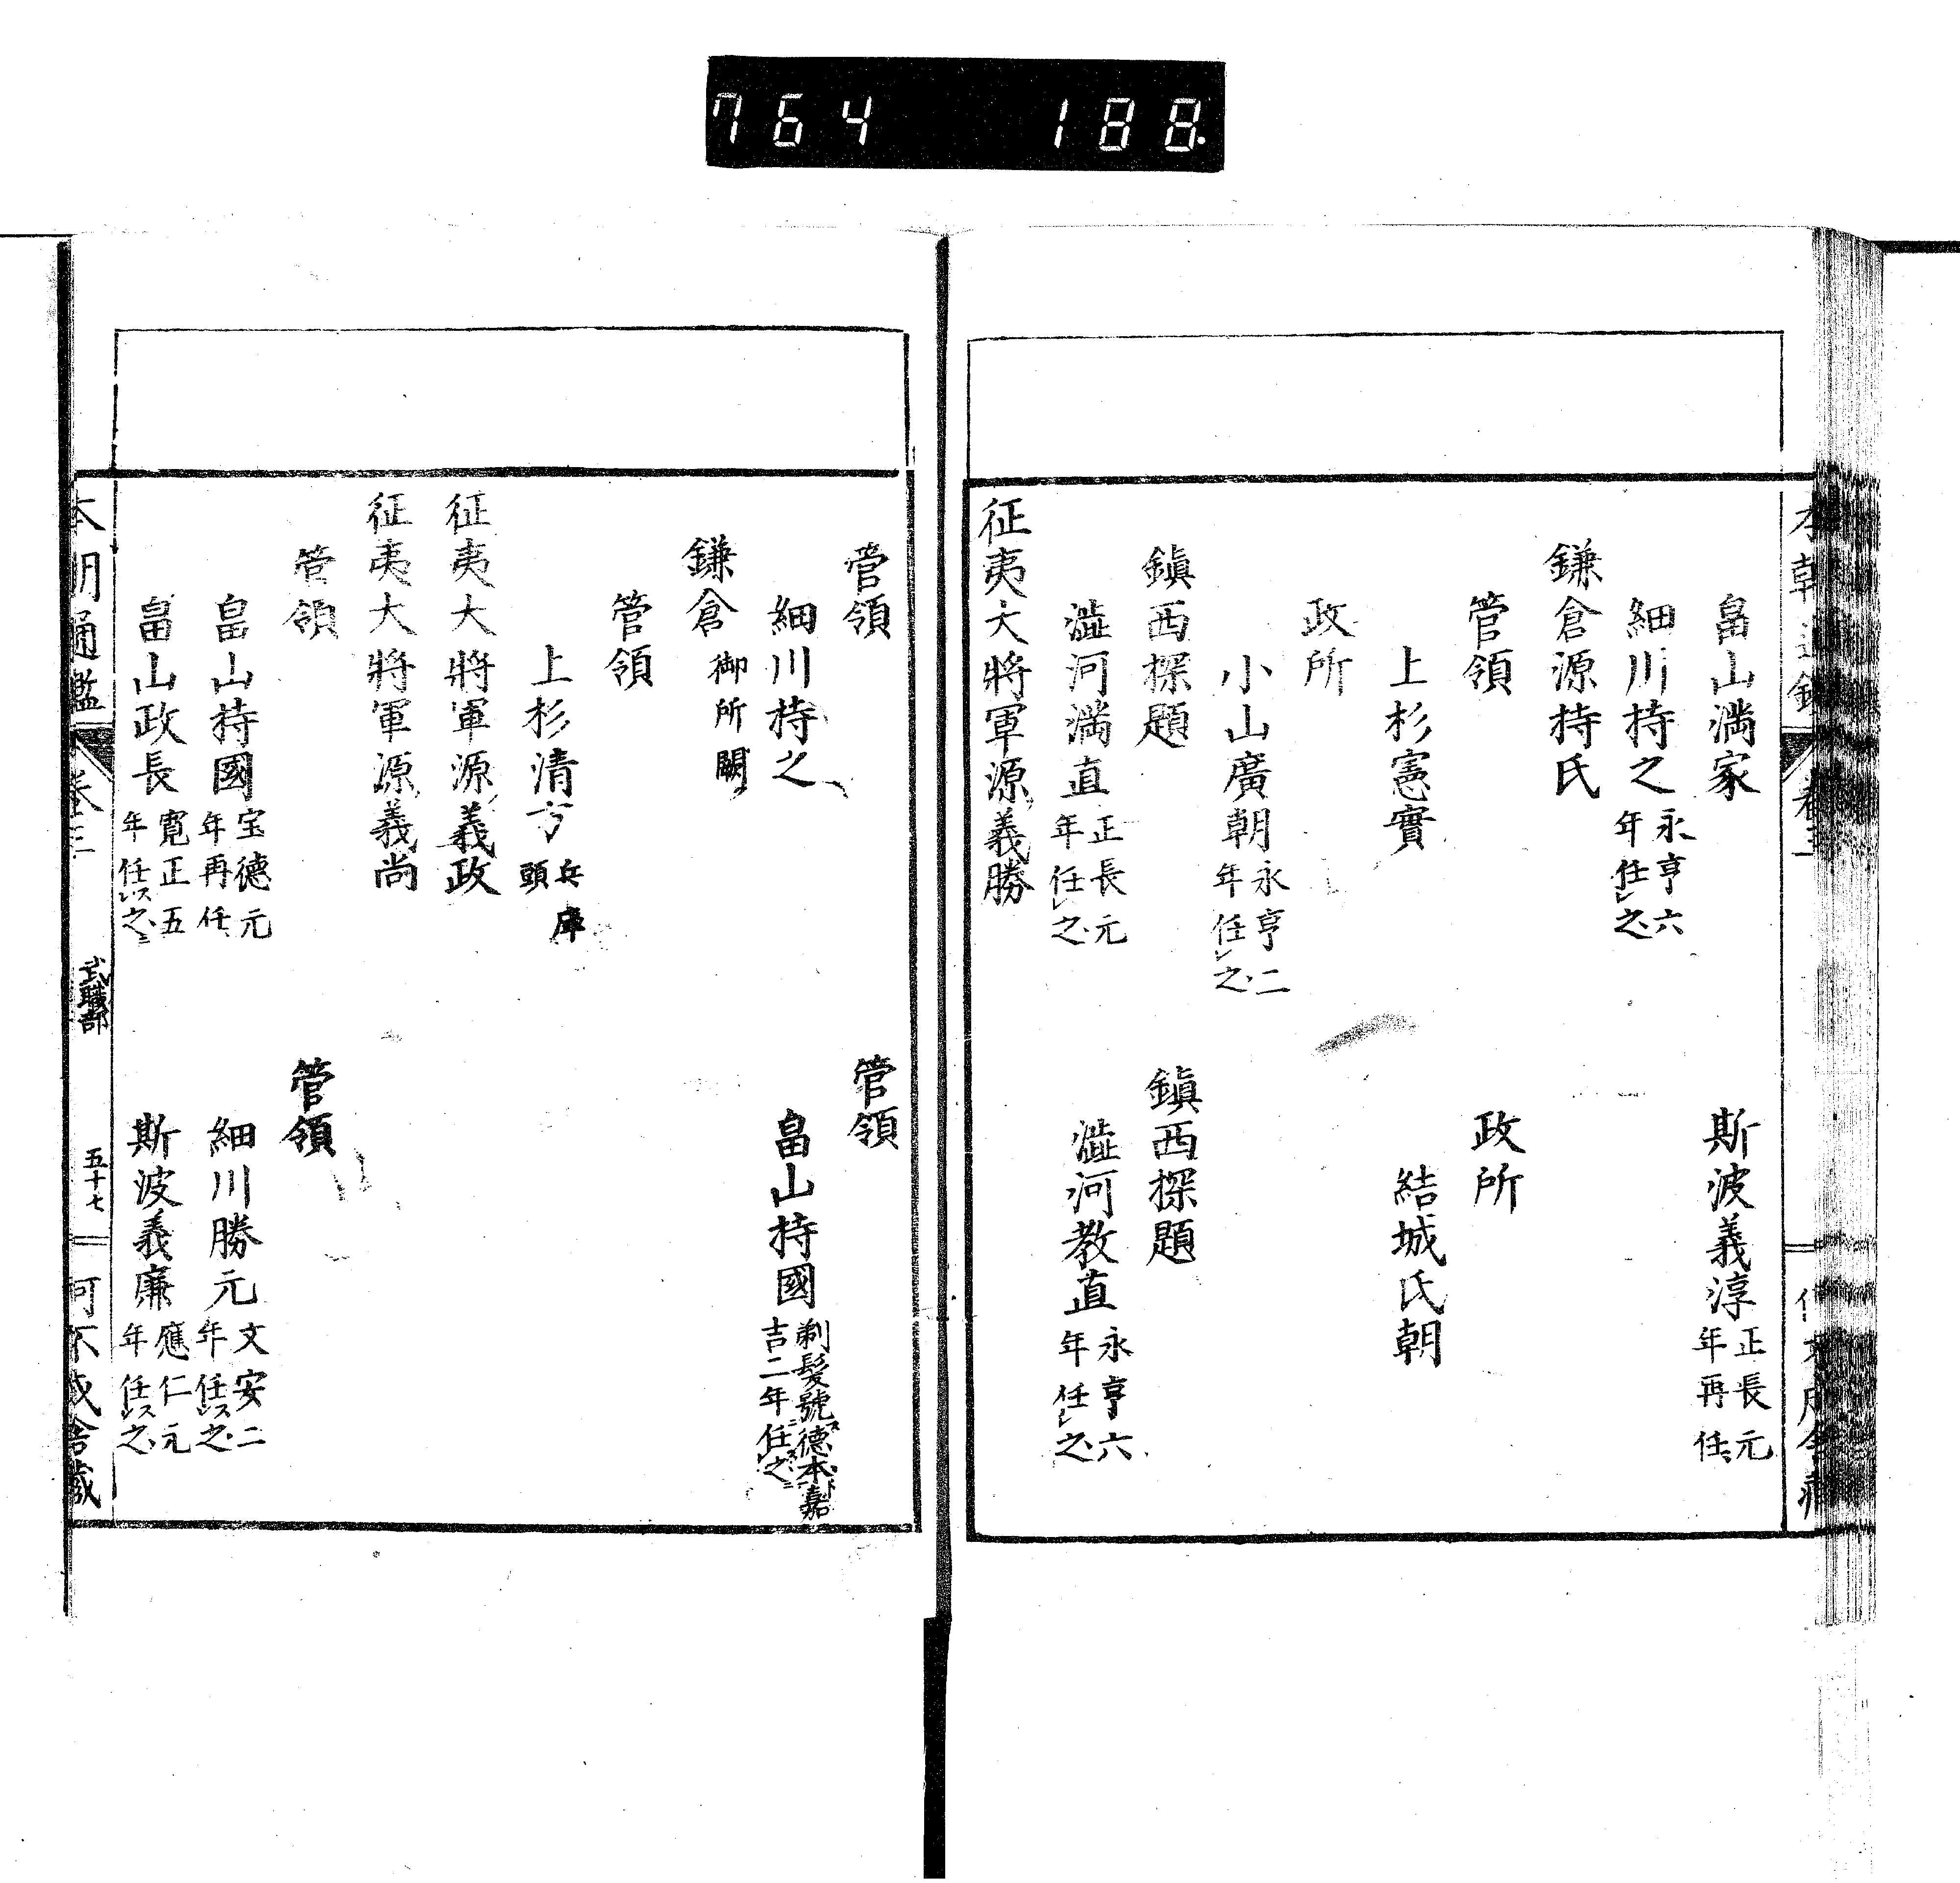 764 188
畠山満家
斯波義淳 正長元年再任
細川持之 永亨六年任之
鎌倉源持氏
管領
政所
上杉憲實
結城氏朝
政所
小山廣朝 永亨二年任之
鎮西探題
鎮西探題
澁河満直 正長元年任之
澁河教直 永亨六年任之
征夷大將軍源義勝
管領
管領
細川持之
畠山持國 剃髮號德本嘉吉二年任之
鎌倉 御所闕
管領
上杉清方 兵庫頭
征夷大將軍源義政
征夷大將軍源義尚
管領
管領
畠山持國 宝德元年再任
細川勝元 文安二年任之
畠山政長 寛正五年任之
斯波義廉 應仁元年任之
本朝通鑑 卷三 武職部 五十七